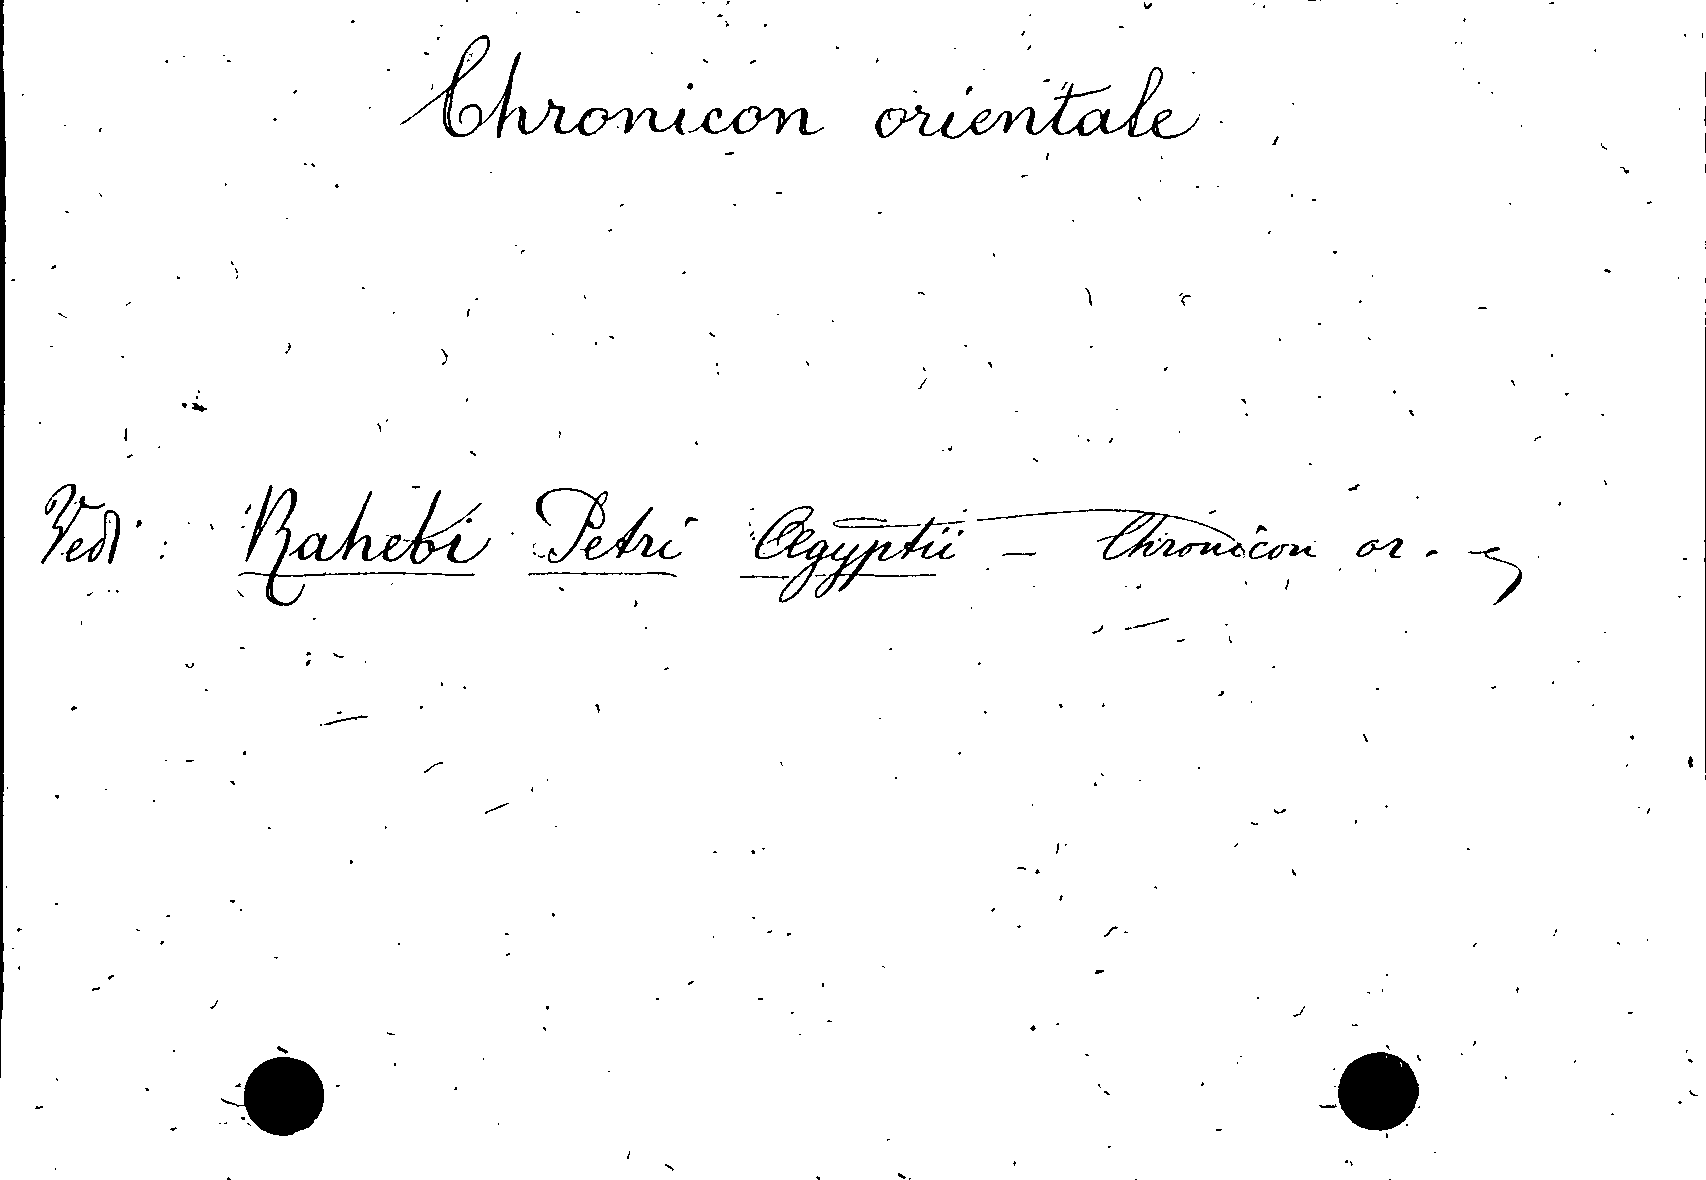 Chronicon orientale
Vedi : Rahebi Petri Ægyptii — Chronicon or.